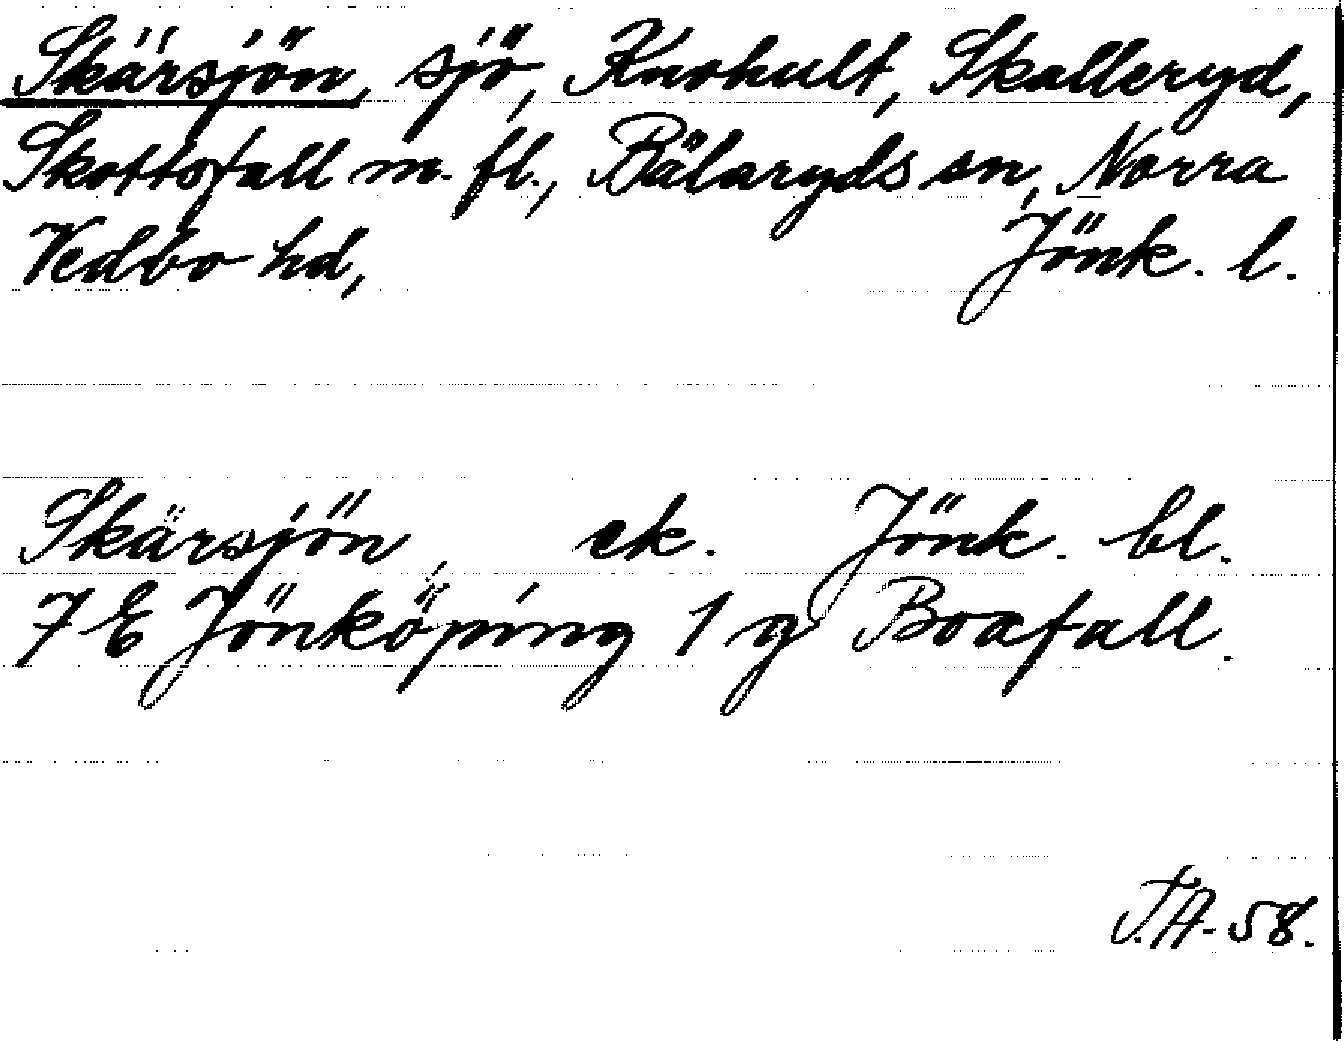 Skärsjön, sjö, Knohult, Skalleryd,
Skottsfall m. fl., Bälaryds sn, Norra
Vedbo hd, Jönk. l.
Skärsjön ek. Jönk. bl.
7 E Jönköping 1 g Boafall.
T.A-58.